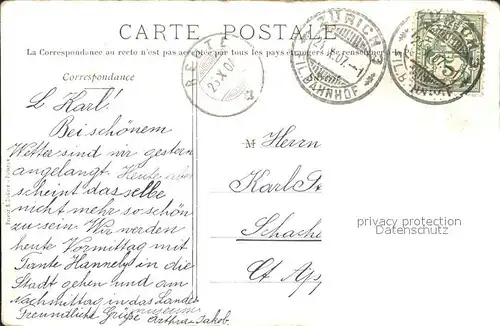 CARTE POSTALE
La Correspondance au recto n'est pas acceptée par tous les pays étrangers (se renseigner
Correspondance
L. Karl!
Bei schönem
Wetter sind wir gestern
angelangt. Heute aber
scheint dasselbe
nicht mehr so schön
zu sein. Wir werden
heute Vormittag mit
Tante Hannely in die
Stadt gehen und am
Nachmittag in das Landes
museum
Freundliche Grüße Arthur Jakob.
23 X 07
ZÜRICH
X. 07.-1
BAHNHOF
M Herrn
Karl
Schache
Ct App
privacy protection
Datenschutz